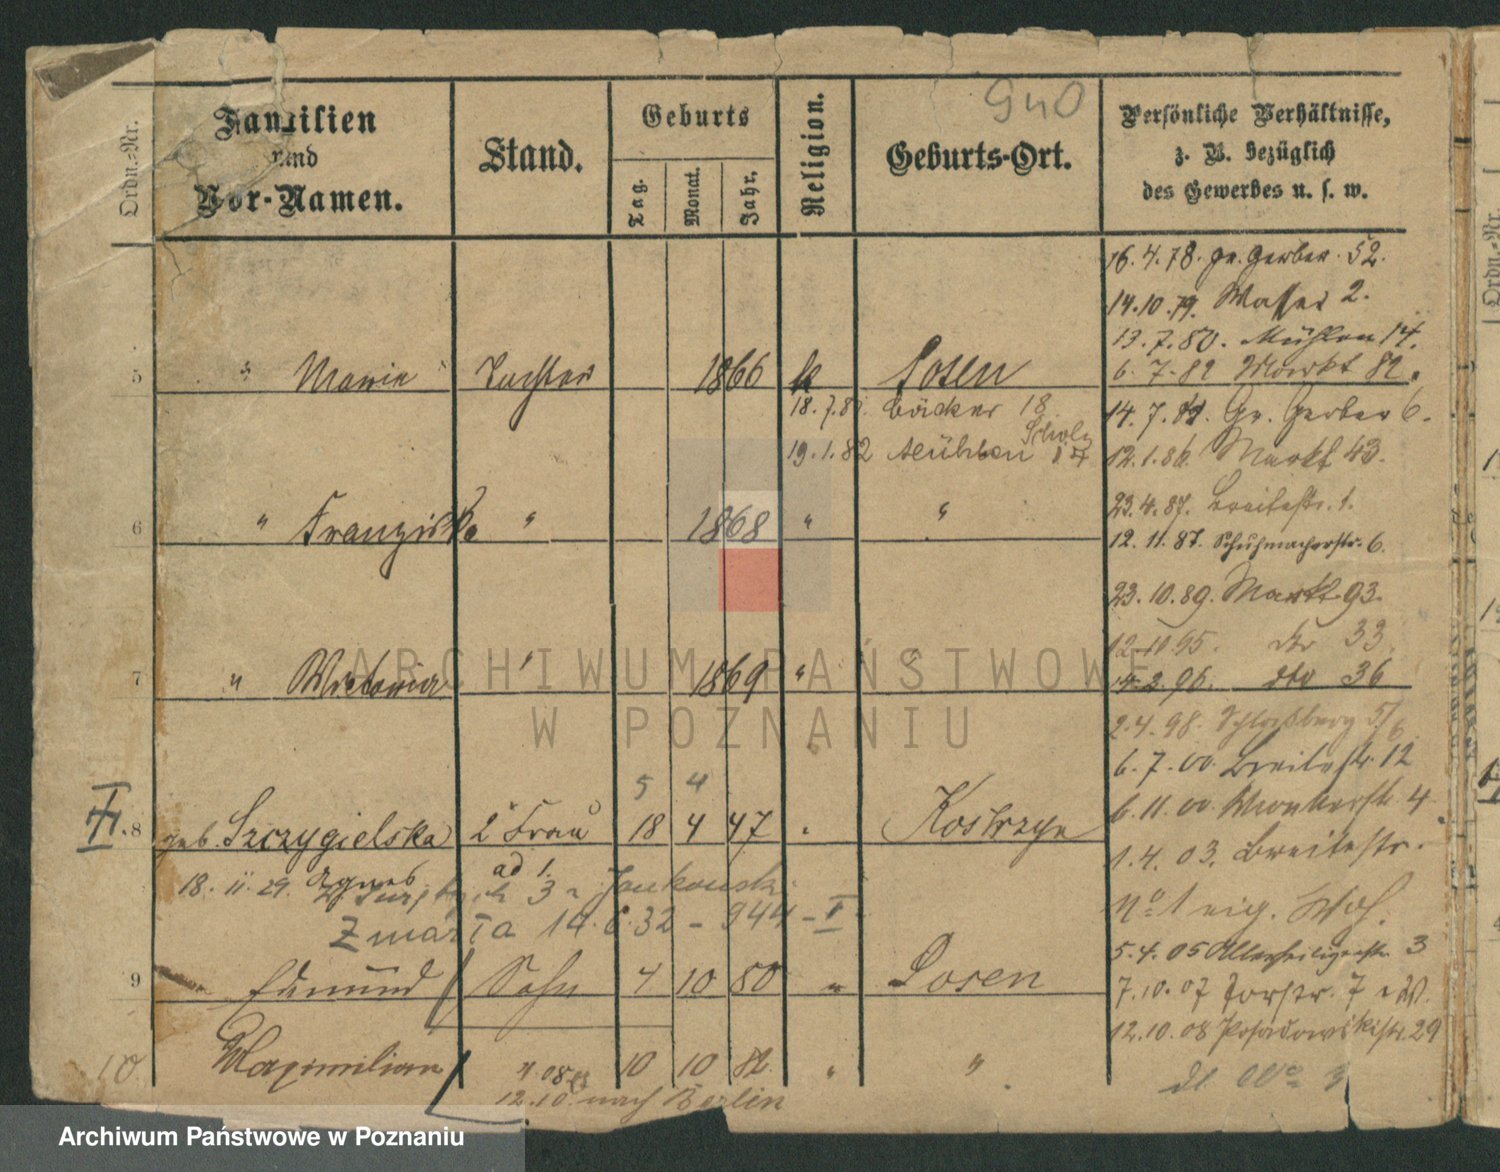 940
Ordn.-Nr.
Familien
und
Vor-Namen.
Stand.
Geburts
Tag.
Monat.
Jahr.
Religion.
Geburts-Ort.
Persönliche Verhältnisse,
z. B. bezüglich
des Gewerbes u. s. w.
16.4.78. gr. Gerber. 52.
14.10.79. Wasser 2.
13.7.80. Mühlen 17.
5 " Marie Tochter 1866 k Posen
6.7.82 Markt 82.
18.7.81 Bäcker 18
14.7.84. Gr. Gerber 6.
19.1.82 Mühlen 17
12.1.86. Markt 43.
23.4.87. Breitestr. 1.
6 " Franziska " 1868 " "
12.11.87. Schuhmacherstr. 6.
23.10.89. Markt 93.
12.11.95. dto 33.
7 " Victoria " 1869 " "
14.2.96. dto 36
2.4.98. Schloßberg 5/6
6.7.00. Breitestr. 12
5 4
8 geb. Szczygielska 2te Frau 18 4 47 " Kostrzyn
6.11.00. 4.
1.4.03. Breitestr.
18.11.29. Agnes ad 1.
3 Jankowski
No 1 eig.
Zmarła 14.6.32 - 944 - I
5.4.05 Allerheiligenstr. 3
9 Edmund Sohn 4 10 80 " Posen
7.10.07 Torstr. 7
12.10.08 Posadowskistr. 29
10 Maximilian " 10 10 82 " "
12.10.08 nach Berlin
ARCHIWUM PAŃSTWOWE
W POZNANIU
Archiwum Państwowe w Poznaniu
Ordn.-Nr.